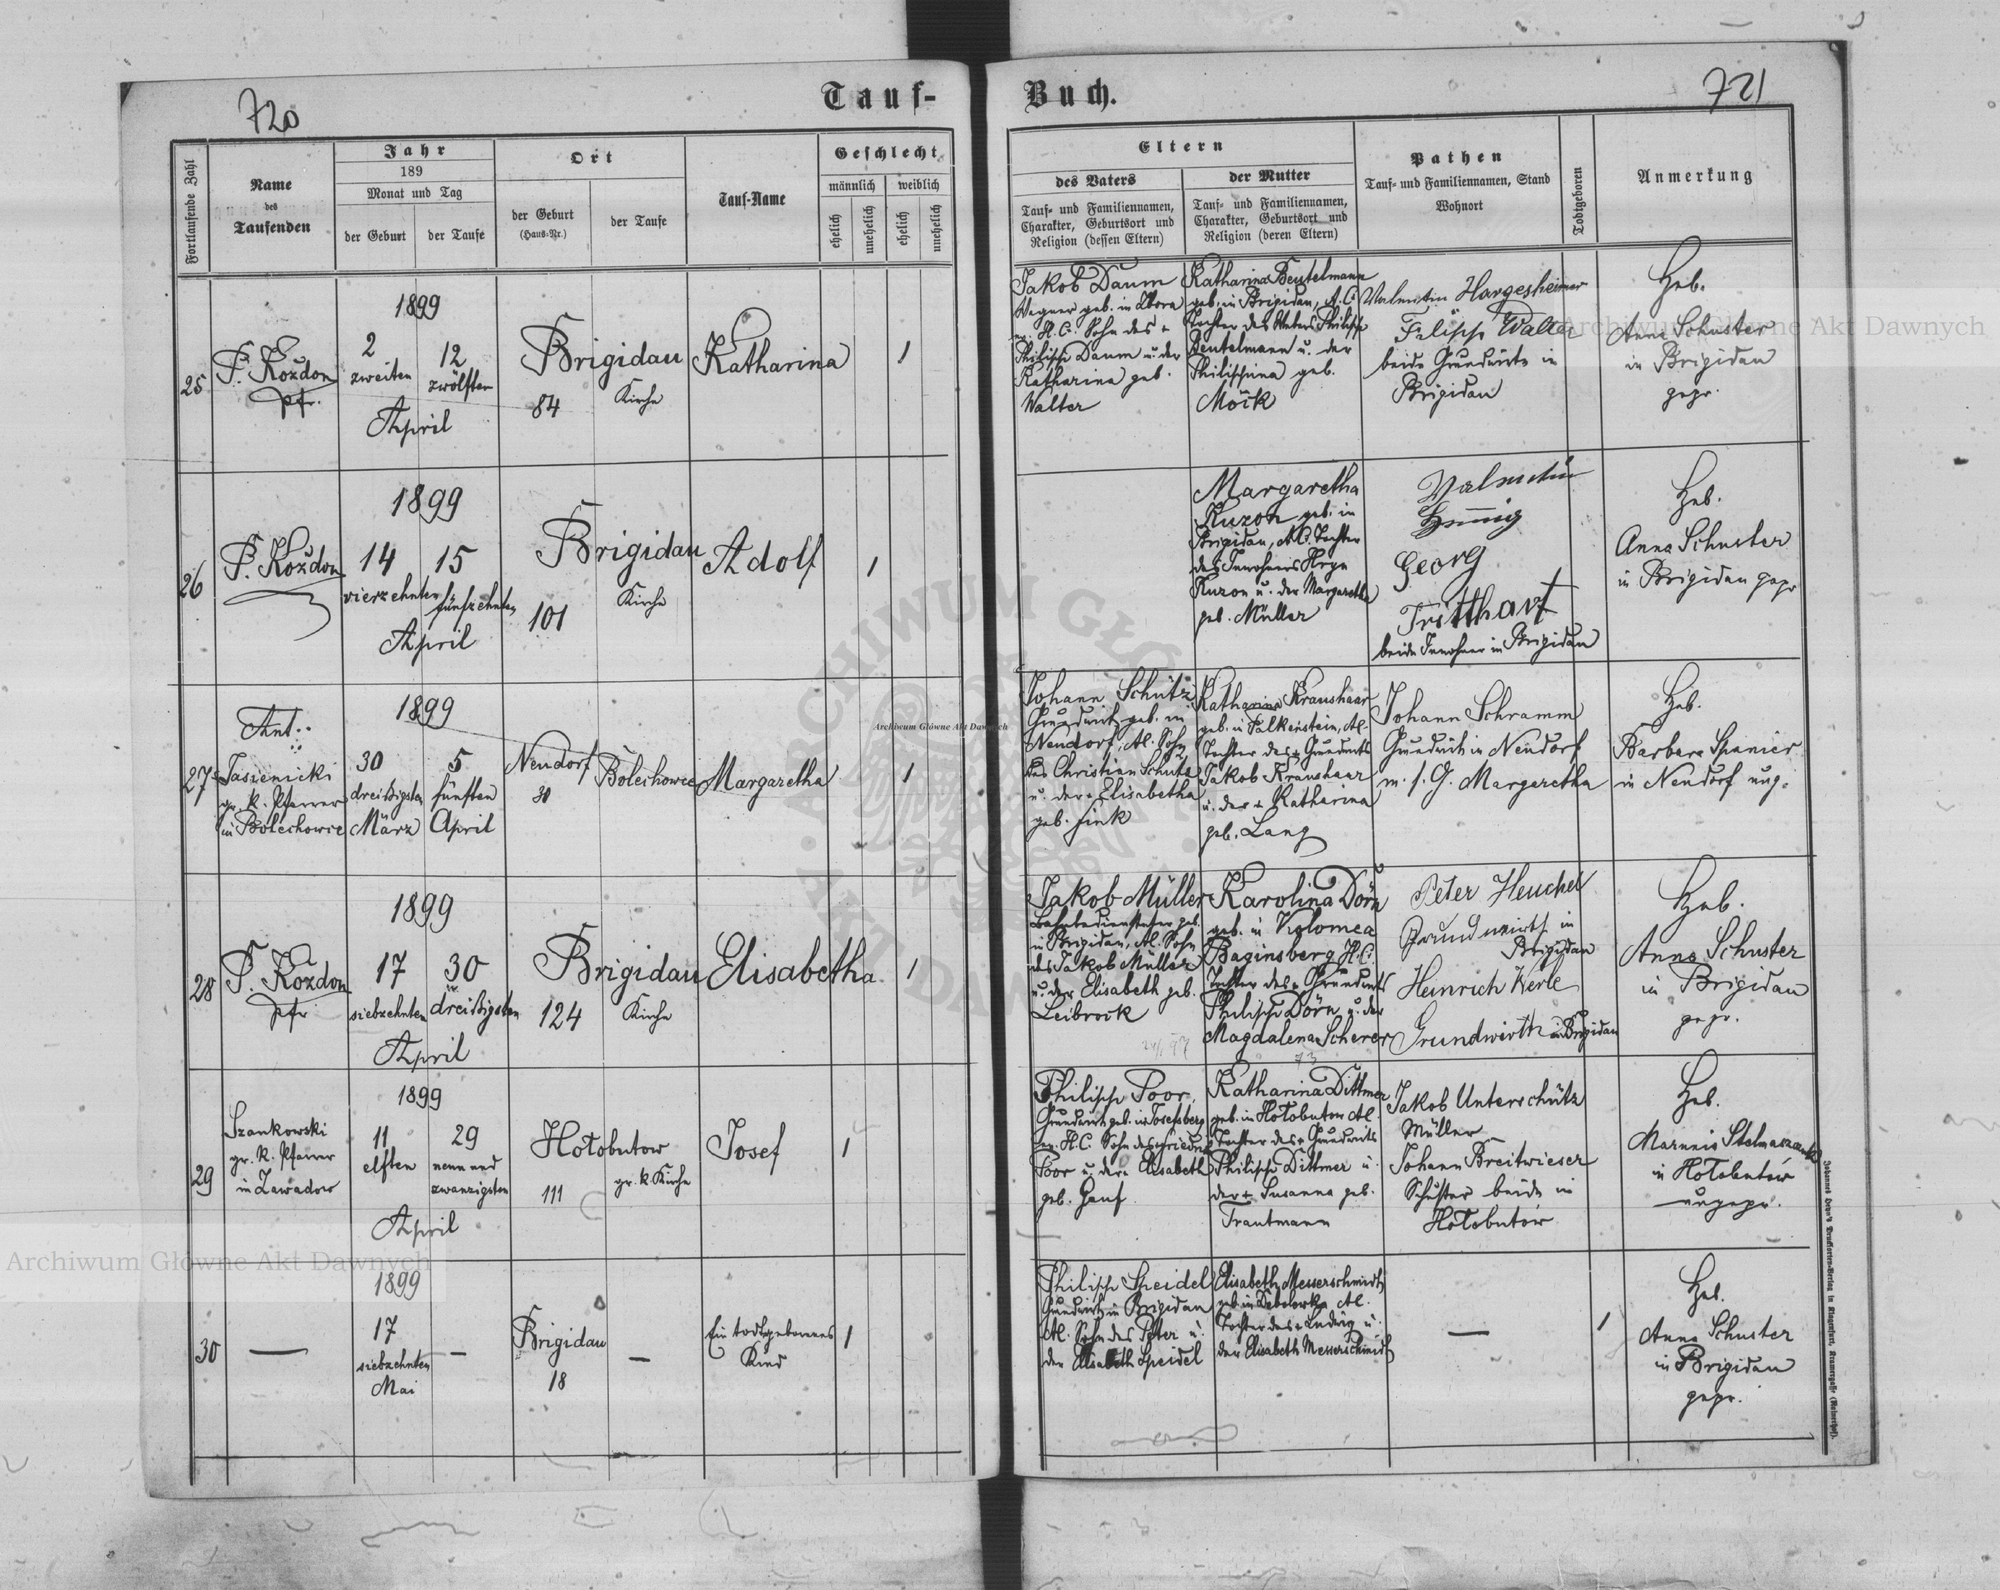 720
Tauf-
Buch.
721
Fortlaufende Zahl
Name
des
Taufenden
Jahr
189
Monat und Tag
der Geburt
der Taufe
Ort
der Geburt
(Haus-Nr.)
der Taufe
Tauf-Name
Geschlecht
männlich
weiblich
ehelich
unehelich
ehelich
unehelich
Eltern
des Vaters
Tauf- und Familiennamen,
Charakter, Geburtsort und
Religion (dessen Eltern)
der Mutter
Tauf- und Familiennamen,
Charakter, Geburtsort und
Religion (deren Eltern)
Pathen
Tauf- und Familiennamen, Stand
Wohnort
Todtgeboren
Anmerkung
25
P. Kożdon
Pfr.
1899
2
zweiten
12
zwölften
April
Brigidau
84
Kirche
Katharina
1
Jakob Daum
Wagner geb. in
H.C. Sohn des +
Philipp Daum u. der
Katharina geb.
Walter
Katharina Beutelmann
geb. in Brigidau, A.C.
Tochter des Webers Philipp
Beutelmann u. der
Philippina geb.
Möck
Valentin Hargesheimer
Filipp Walter
beide Grundwirte in
Brigidau
Heb.
Anna Schuster
in Brigidau
gepr.
26
P. Kożdon
1899
14
vierzehnten
15
fünfzehnten
April
Brigidau
101
Kirche
Adolf
1
Margaretha
Kuzon geb. in
Brigidau, A.C. Tochter
des Inwohners
Kuzon u. der Margaretha
geb. Müller
Valentin
Georg
Tritthart
beide Inwohner in Brigidau
Heb.
Anna Schuster
in Brigidau gepr
27
Ant.
Jasienicki
gr. k. Pfarrer
in Bolechowce
1899
30
dreißigsten
März
5
fünften
April
Neudorf
30
Bolechowce
Margaretha
1
Johann Schütz
Grundwirt geb. in
Neudorf, A.C. Sohn
des Christian Schütz
u. der + Elisabetha
geb. Fink
Katharina Kraushaar
geb. in Falkenstein, A.C.
Tochter des + Grundwirts
Jakob Kraushaar
u. der + Katharina
geb. Lang
Johann Schramm
Grundwirt in Neudorf
m. s. G. Margaretha
Heb.
Barbara Spanier
in Neudorf ung.
28
P. Kożdon
Pfr
1899
17
siebzehnten
30
dreißigsten
April
Brigidau
124
Kirche
Elisabetha
1
Jakob Müller
Bahnbediensteter geb.
in Brigidau, A.C. Sohn
des Jakob Müller
u. der Elisabeth geb.
Leibrock
Karolina Dörn
geb. in Kolomea
Baginsberg H.C.
Tochter des + Grundwirts
Philipp Dörn u. der
Magdalena Scherer
Peter Heuchel
Grundwirt in
Brigidau
Heinrich Kerle
Grundwirth in Brigidau
Heb.
Anna Schuster
in Brigidau
gepr.
29
Szankowski
gr. k. Pfarrer
in Zawadow
1899
11
elften
29
neunund
zwanzigsten
April
Hołobutow
111
gr. k. Kirche
Josef
1
Philipp Poor,
Grundwirt geb. in Josefsberg
ev. H.C. Sohn des Friedrich
Poor u. der Elisabeth
geb. Hauf
Katharina Dittmer
geb. in Hołobutow A.C.
Tochter des + Grundwirts
Philipp Dittmer u.
der + Susanna geb.
Trautmann
Jakob Unterschütz
Müller
Johann Breitwieser
Schuster beide in
Hołobutów
Heb.
in Hołobutów
ungepr.
30
1899
17
siebzehnten
Mai
Brigidau
18
Ein todtgeborenes
Kind
1
Philipp Speidel
Grundwirt in Brigidau
A.C. Sohn des Peter u.
der Elisabeth Speidel
Elisabeth Messerschmidt
geb. in Debolowka A.C.
Tochter des + Ludwig u.
der Elisabeth Messerschmidt
1
Heb.
Anna Schuster
in Brigidau
gepr.
Archiwum Główne Akt Dawnych
Archiwum Główne Akt Dawnych
Archiwum Główne Akt Dawnych